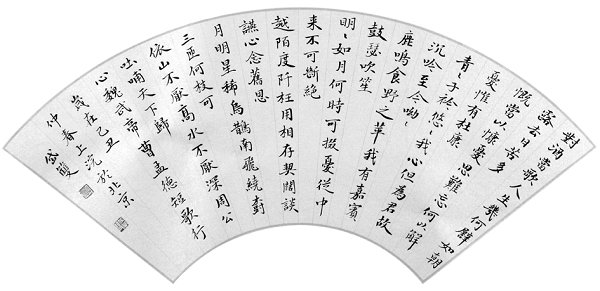 對酒當歌人生幾何譬如朝
露去日苦多
慨當以慷憂思難忘何以解
憂惟有杜康
青〻子衿悠〻我心但為君故
沉吟至今呦〻
鹿鳴食野之苹我有嘉賓
鼓瑟吹笙
明〻如月何時可掇憂從中
來不可斷絕
越陌度阡枉用相存契闊談
讌心念舊恩
月明星稀烏鵲南飛繞樹
三匝何枝可
依山不厭高水不厭深周公
吐哺天下歸
心魏武帝曹孟德短歌行
歲在己丑
仲春上浣於北京